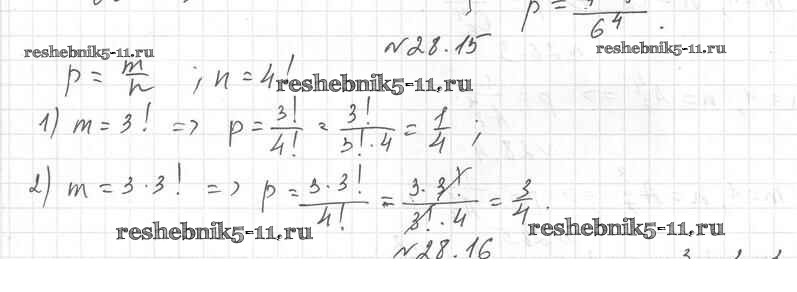 p = — / 6⁴ .
№28.15
reshebnik5-11.ru reshebnik5-11.ru
p = m/n ; n = 4!
reshebnik5-11.ru
1) m = 3! => p = 3!/4! = 3!/(3!·4) = 1/4 ;
2) m = 3·3! => p = 3·3!/4! = 3·3!/(3!·4) = 3/4 .
reshebnik5-11.ru reshebnik5-11.ru
№28.16